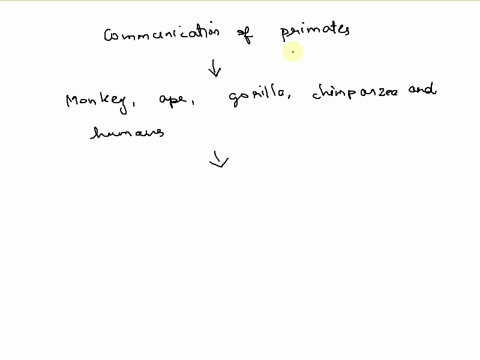 Communication of primates
Monkey, ape, gorilla, chimpanzee and
humans